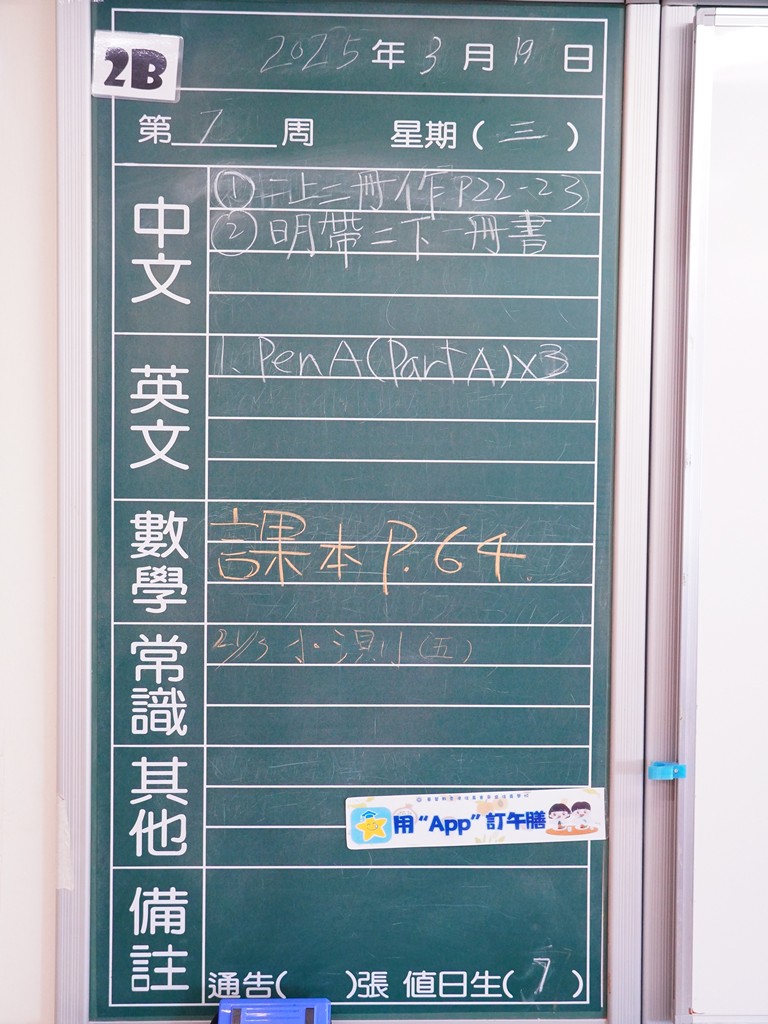 2B
2025年3月19日
第7周 星期(三)
中文
① 二上二冊作P22-23
② 明帶二下一冊書
英文
1. Pen A (Part A) x3
數學
課本 P.64.
常識
21/3 小測(五)
其他
用“App”訂午膳
備註
通告( )張 值日生(7)